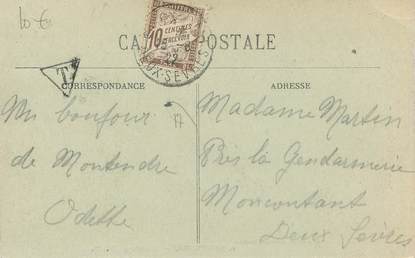 10 €
CARTE POSTALE
10 CENTIMES
À PERCEVOIR
22
DEUX-SÈVRES
T
CORRESPONDANCE
ADRESSE
Un bonjour
de Montendre
Odette
Madame Martin
Près la Gendarmerie
Moncoutant
Deux Sèvres